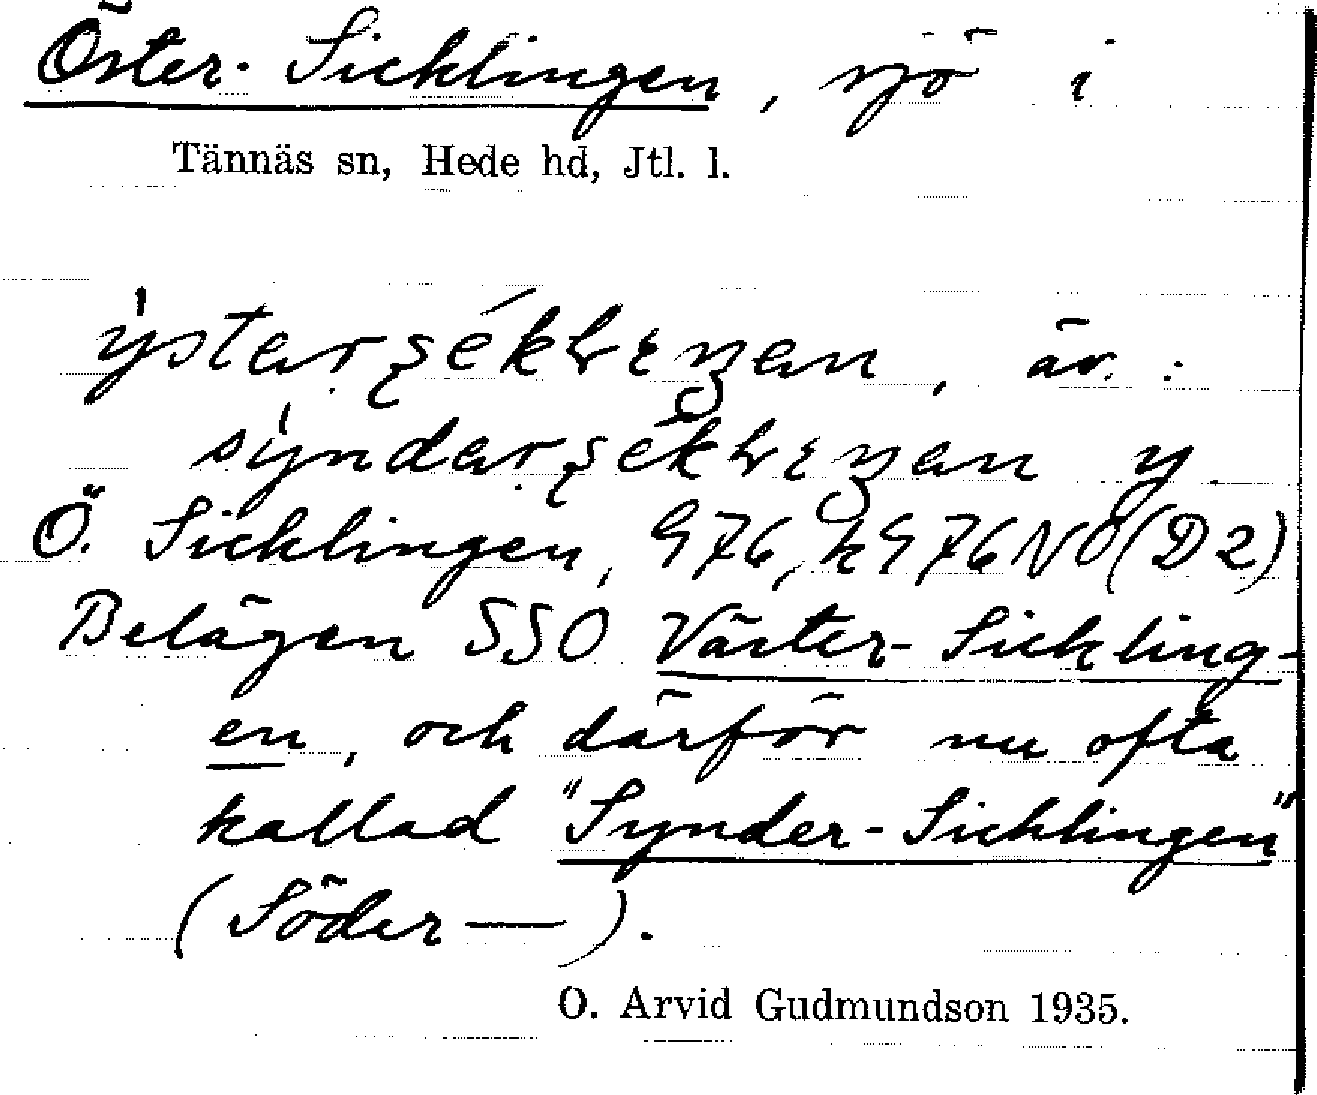 Öster-Sicklingen, sjö i
Tännäs sn, Hede hd, Jtl. l.
äv.:
Ö. Sicklingen, G76, kG76NO(D2)
Belägen SSO Väster-Sickling-
en, och därför nu ofta
kallad "Synder-Sicklingen"
(Söder—).
O. Arvid Gudmundson 1935.